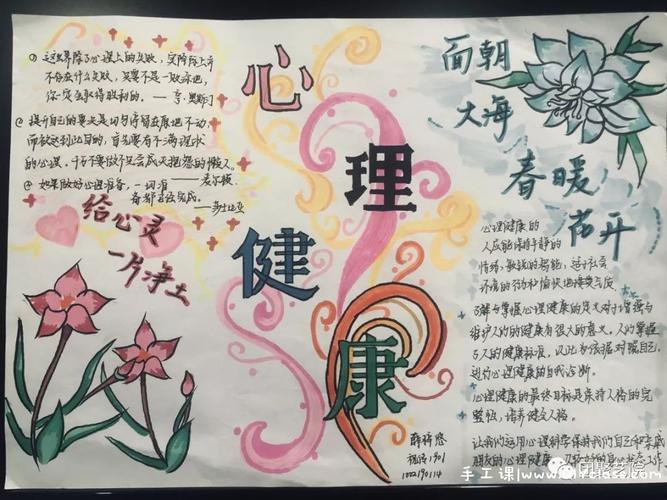 ① 这世界除了心理上的失败，实际上并
不存在什么失败，只要不是一败涂地，
你一定会取得胜利的。——亨·奥斯汀
② 提升自己的要决是切勿停留在原地不动，
而欲达到此目的，首先要有不满现状
的心理。
③ 如果做好心理准备，一切准
备都已经完成。
——莎士比亚
给心灵
一片净土
心
理
健
康
面朝
大海
春暖
花开
心理健康的
人应能保持平静的
情绪，敏锐的智能，适于社会
环境的行为和愉快的
了解与掌握心理健康的定义对于增强与
维护人们的健康有很大的意义。人们掌握
了人的健康标准，以此为依据对照自己，
进行心理健康的自我诊断。
心理健康的最终目标是保持人格的完
整性，培养健全人格。
让我们运用心理科学保持我们自己和亲戚
朋友的心理健康，
1901
1002190114
手工课